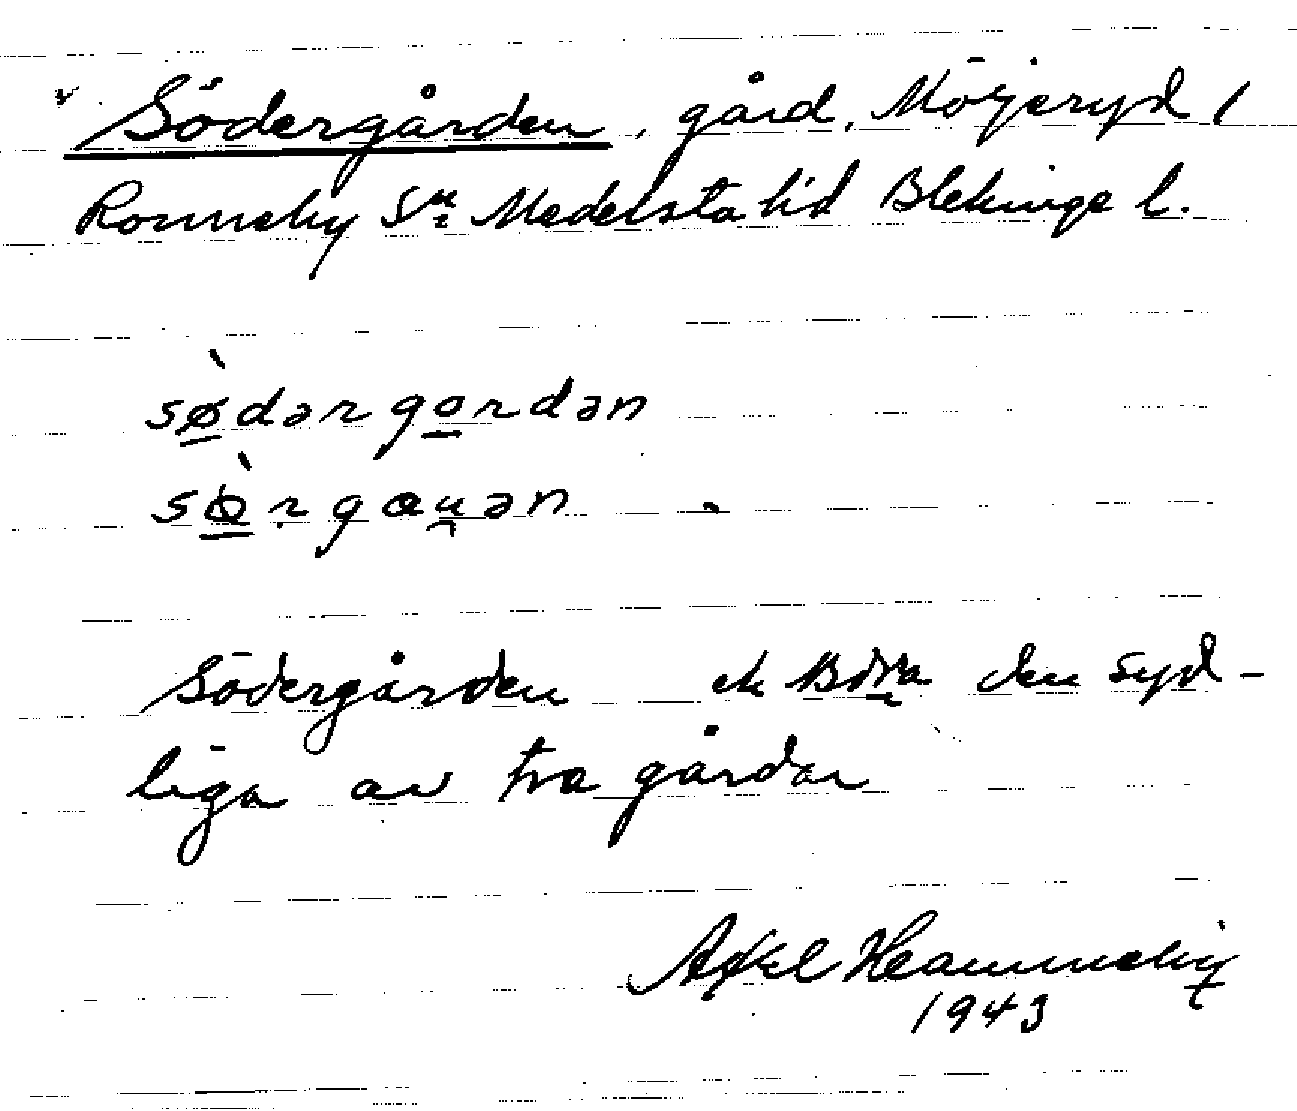 Södergården, gård, Möljeryd 1
Ronneby Sn: Medelsta hd Blekinge l.
sø̀dərgordən
sø̀rgauən
Södergården den syd-
liga av två gårdar
Axel
1943